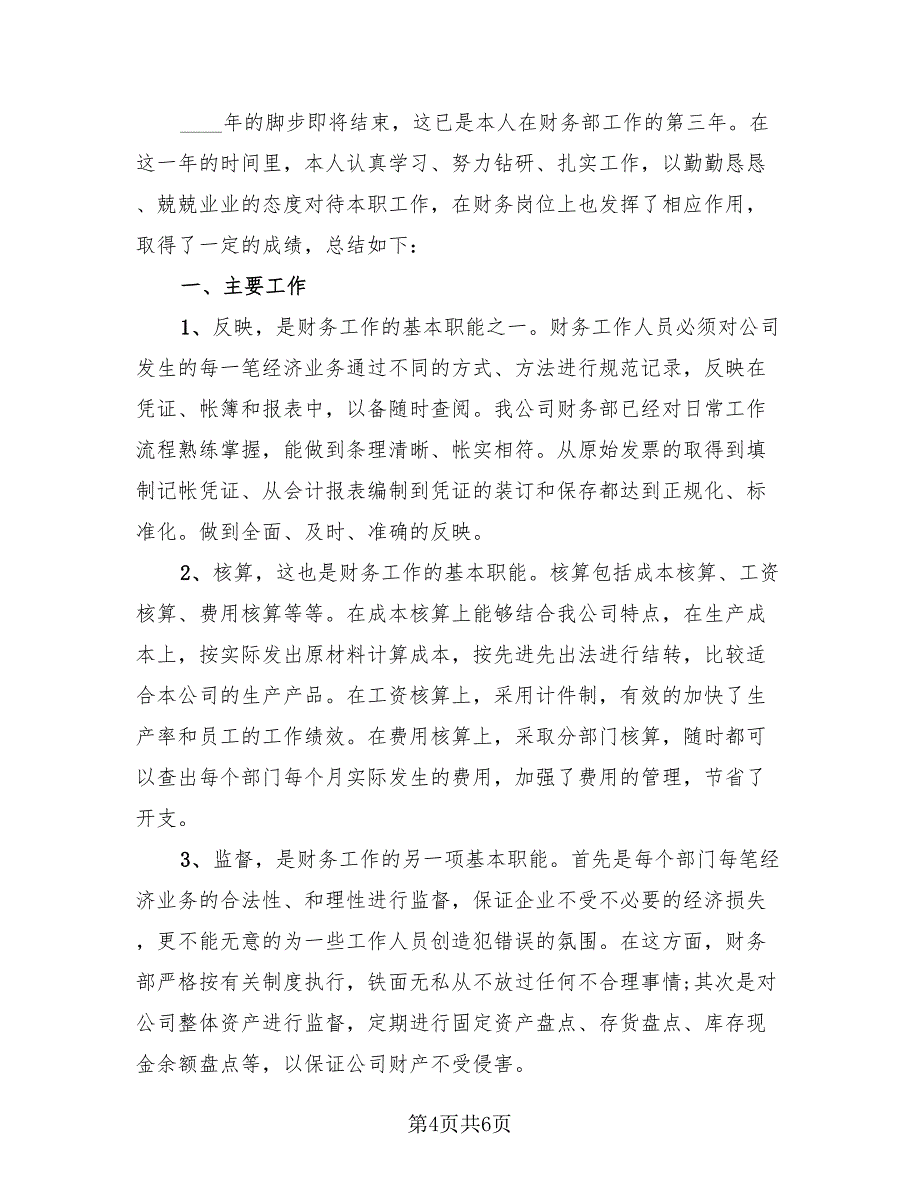 ____年的脚步即将结束，这已是本人在财务部工作的第三年。在
这一年的时间里，本人认真学习、努力钻研、扎实工作，以勤勤恳恳
、兢兢业业的态度对待本职工作，在财务岗位上也发挥了相应作用，
取得了一定的成绩，总结如下：
一、主要工作
1、反映，是财务工作的基本职能之一。财务工作人员必须对公司
发生的每一笔经济业务通过不同的方式、方法进行规范记录，反映在
凭证、帐簿和报表中，以备随时查阅。我公司财务部已经对日常工作
流程熟练掌握，能做到条理清晰、帐实相符。从原始发票的取得到填
制记帐凭证、从会计报表编制到凭证的装订和保存都达到正规化、标
准化。做到全面、及时、准确的反映。
2、核算，这也是财务工作的基本职能。核算包括成本核算、工资
核算、费用核算等等。在成本核算上能够结合我公司特点，在生产成
本上，按实际发出原材料计算成本，按先进先出法进行结转，比较适
合本公司的生产产品。在工资核算上，采用计件制，有效的加快了生
产率和员工的工作绩效。在费用核算上，采取分部门核算，随时都可
以查出每个部门每个月实际发生的费用，加强了费用的管理，节省了
开支。
3、监督，是财务工作的另一项基本职能。首先是每个部门每笔经
济业务的合法性、和理性进行监督，保证企业不受不必要的经济损失
，更不能无意的为一些工作人员创造犯错误的氛围。在这方面，财务
部严格按有关制度执行，铁面无私从不放过任何不合理事情;其次是对
公司整体资产进行监督，定期进行固定资产盘点、存货盘点、库存现
金余额盘点等，以保证公司财产不受侵害。
第4页共6页